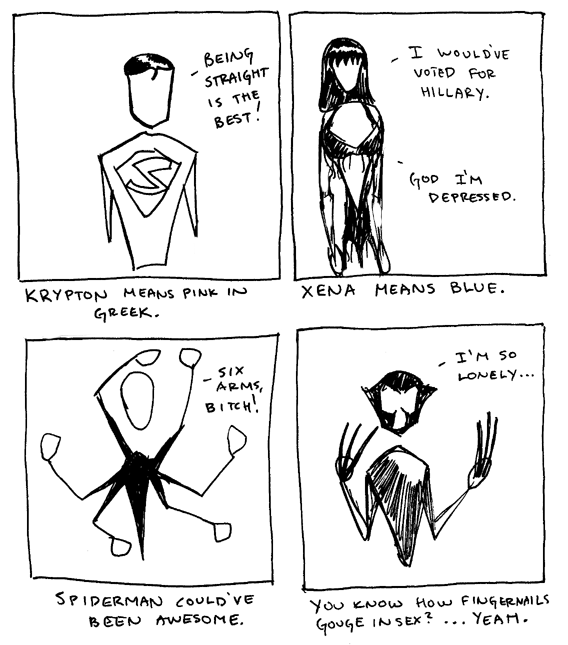 BEING
STRAIGHT
IS THE
BEST!
S
KRYPTON MEANS PINK IN
GREEK.
I WOULD'VE
VOTED FOR
HILLARY.
GOD I'M
DEPRESSED.
XENA MEANS BLUE.
SIX
ARMS,
BITCH!
SPIDERMAN COULD'VE
BEEN AWESOME.
I'M SO
LONELY...
YOU KNOW HOW FINGERNAILS
GOUGE IN SEX? ... YEAH.